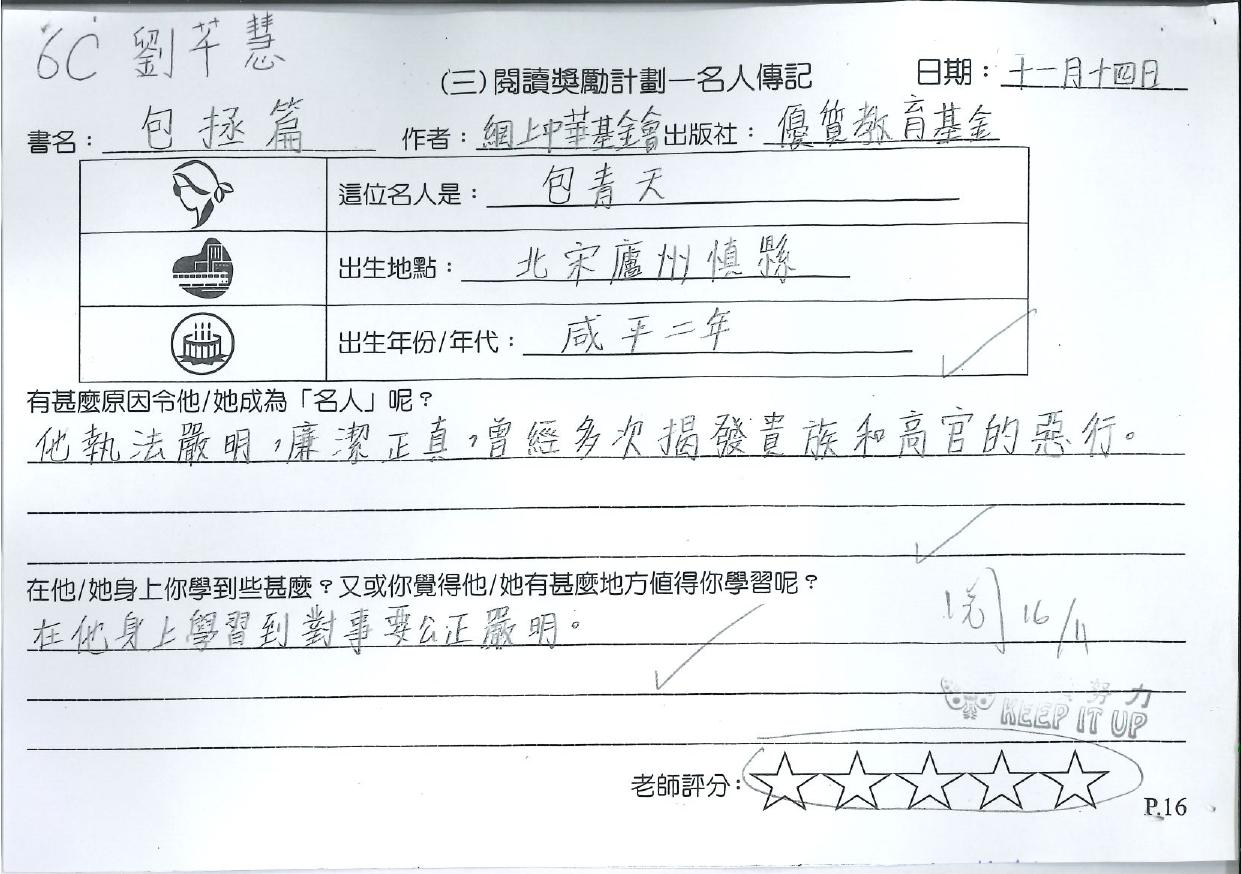 6C 劉芊慧
(三)閱讀獎勵計劃—名人傳記
日期：十一月十四日
書名：包拯篇 作者：網上中華基金會 出版社：優質教育基金
這位名人是：包青天
出生地點：北宋廬州慎縣
出生年份/年代：咸平二年
有甚麼原因令他/她成為「名人」呢？
他執法嚴明，廉潔正真，曾經多次揭發貴族和高官的惡行。
在他/她身上你學到些甚麼？又或你覺得他/她有甚麼地方值得你學習呢？
在他身上學習到對事要公正嚴明。
16/11
努力
KEEP IT UP
老師評分：
P.16